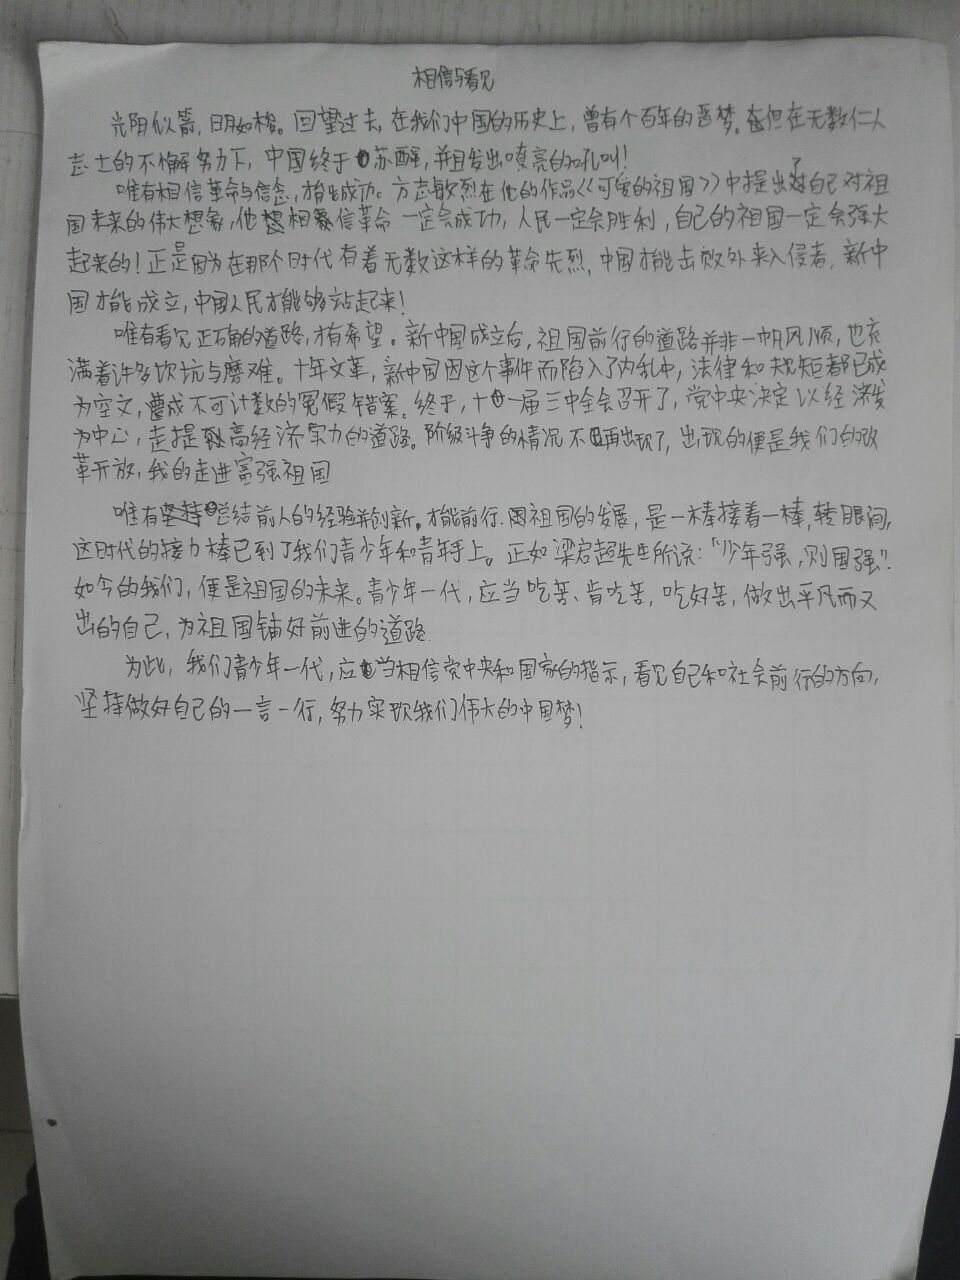 相信与看见
光阴似箭，日月如梭。回望过去，在我们中国的历史上，曾有个百年的恶梦。但在无数仁人
志士的不懈努力下，中国终于苏醒，并且发出嘹亮的吼叫！
唯有相信革命与信念，才能成功。方志敏烈在他的作品《可爱的祖国》中提出了自己对祖
国未来的伟大想象，他相信革命一定会成功，人民一定会胜利，自己的祖国一定会强大
起来的！正是因为在那个时代有着无数这样的革命先烈，中国才能击败外来入侵者，新中
国才能成立，中国人民才能够站起来！
唯有看见正确的道路，才有希望。新中国成立后，祖国前行的道路并非一帆风顺，也充
满着许多坎坑与磨难。十年文革，新中国因这个事件而陷入了内乱中，法律和规矩都已成
为空文，遭成不可计数的冤假错案。终于，十一届三中全会召开了，党中央决定以经济发
为中心，走提高经济实力的道路。阶级斗争的情况不再出现了，出现的便是我们的改
革开放，我的走进富强祖国
唯有总结前人的经验并创新，才能前行，祖国的发展，是一棒接着一棒，转眼间，
这时代的接力棒已到了我们青少年和青年手上。正如梁启超先生所说：“少年强，则国强”.
如今的我们，便是祖国的未来。青少年一代，应当吃苦、肯吃苦，吃好苦，做出平凡而又
出的自己，为祖国铺好前进的道路.
为此，我们青少年一代，应当相信党中央和国家的指示，看见自己和社会前行的方向，
坚持做好自己的一言一行，努力实现我们伟大的中国梦！